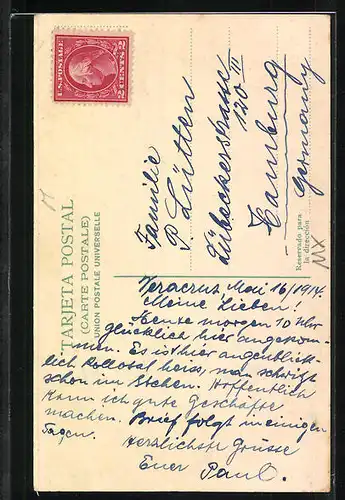 U.S. POSTAGE
2 CENTS 2
TARJETA POSTAL
(CARTE POSTALE)
UNION POSTALE UNIVERSELLE
Familie
P. Lütten
Lübeckerstrasse
120 III
Hamburg
Germany
Reservado para
la dirección
MX
Veracruz, Mai 16/1914.
Meine Lieben!
Heute morgen 10 Uhr
glücklich hier angekom-
men. Es ist hier augenblick-
lich kollosal heiss, man schwitzt
schon im Stehen. Hoffentlich
kann ich gute Geschäfte
machen. Brief folgt in einigen
Tagen.
Herzlichste Grüsse
Euer Paul.